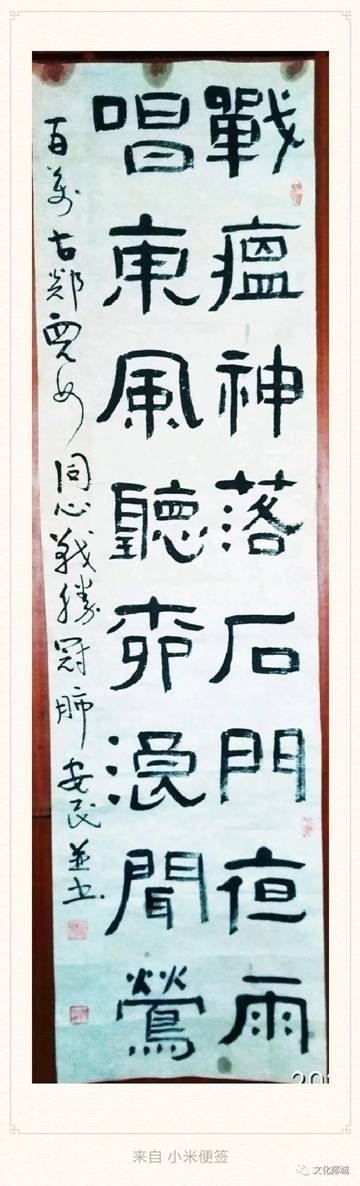 戰瘟神落石門夜雨
唱東風聽柳浪聞鶯
百萬古郯兒女同心戰勝冠肺安民並书
来自 小米便签
文化郯城